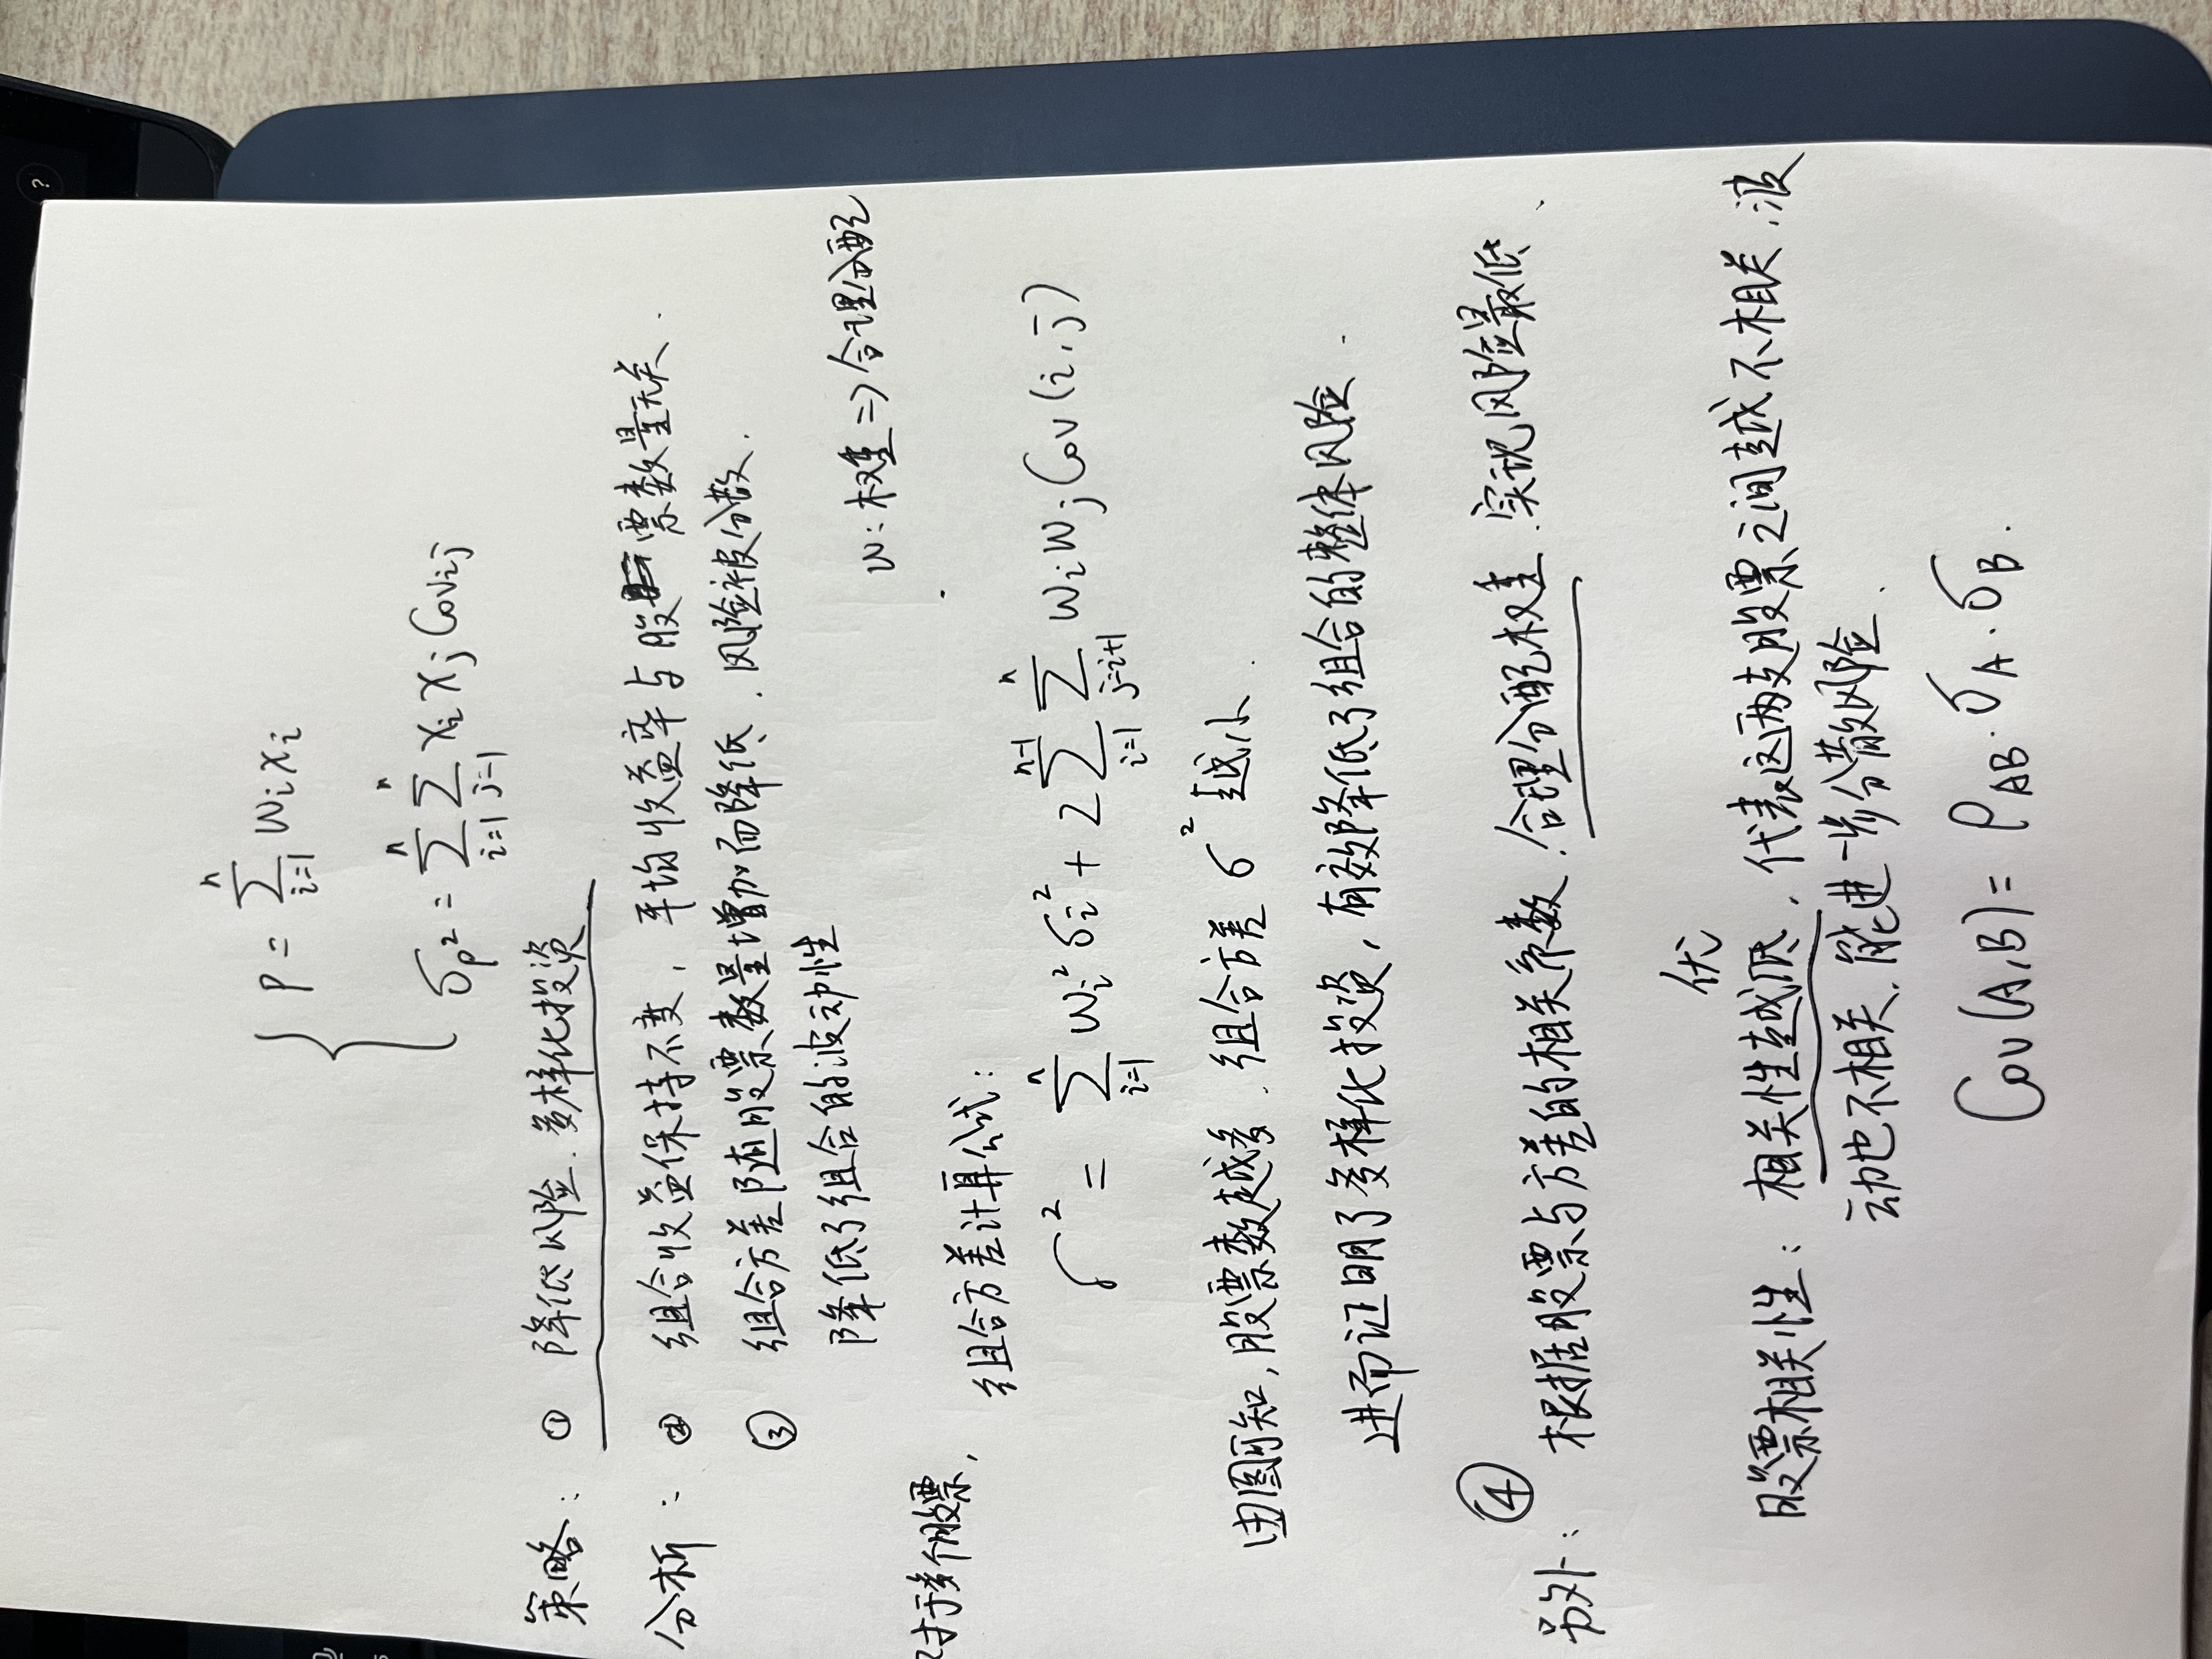 P = \sum_{i=1}^{n} w_i x_i
σ_p² = \sum_{i=1}^{n} \sum_{j=1}^{n} x_i x_j Cov_{ij}
策略： ① 降低风险、多样化投资
分析： ② 组合收益保持不变，平均收益率与股票数量无关．
③ 组合方差随股票数量增加而降低．风险被分散．
降低了组合的波动性
w：权重 => 合理分配
对于多个股票，
组合方差计算公式：
σ² = \sum_{i=1}^{n} w_i² σ_i² + 2 \sum_{i=1}^{n-1} \sum_{j=i+1}^{n} w_i w_j Cov(i,j)
由图可知，股票数越多．组合方差 σ² 越小．
进而证明了多样化投资，有效降低了组合的整体风险．
④
另外： 根据股票与方差的相关系数．合理分配权重、实现风险最低、
优
股票相关性：相关性越低．代表这两支股票之间越不相关，波
动也不相关．能进一步分散风险．
Cov(A,B) = ρ_{AB}·σ_A·σ_B.
?